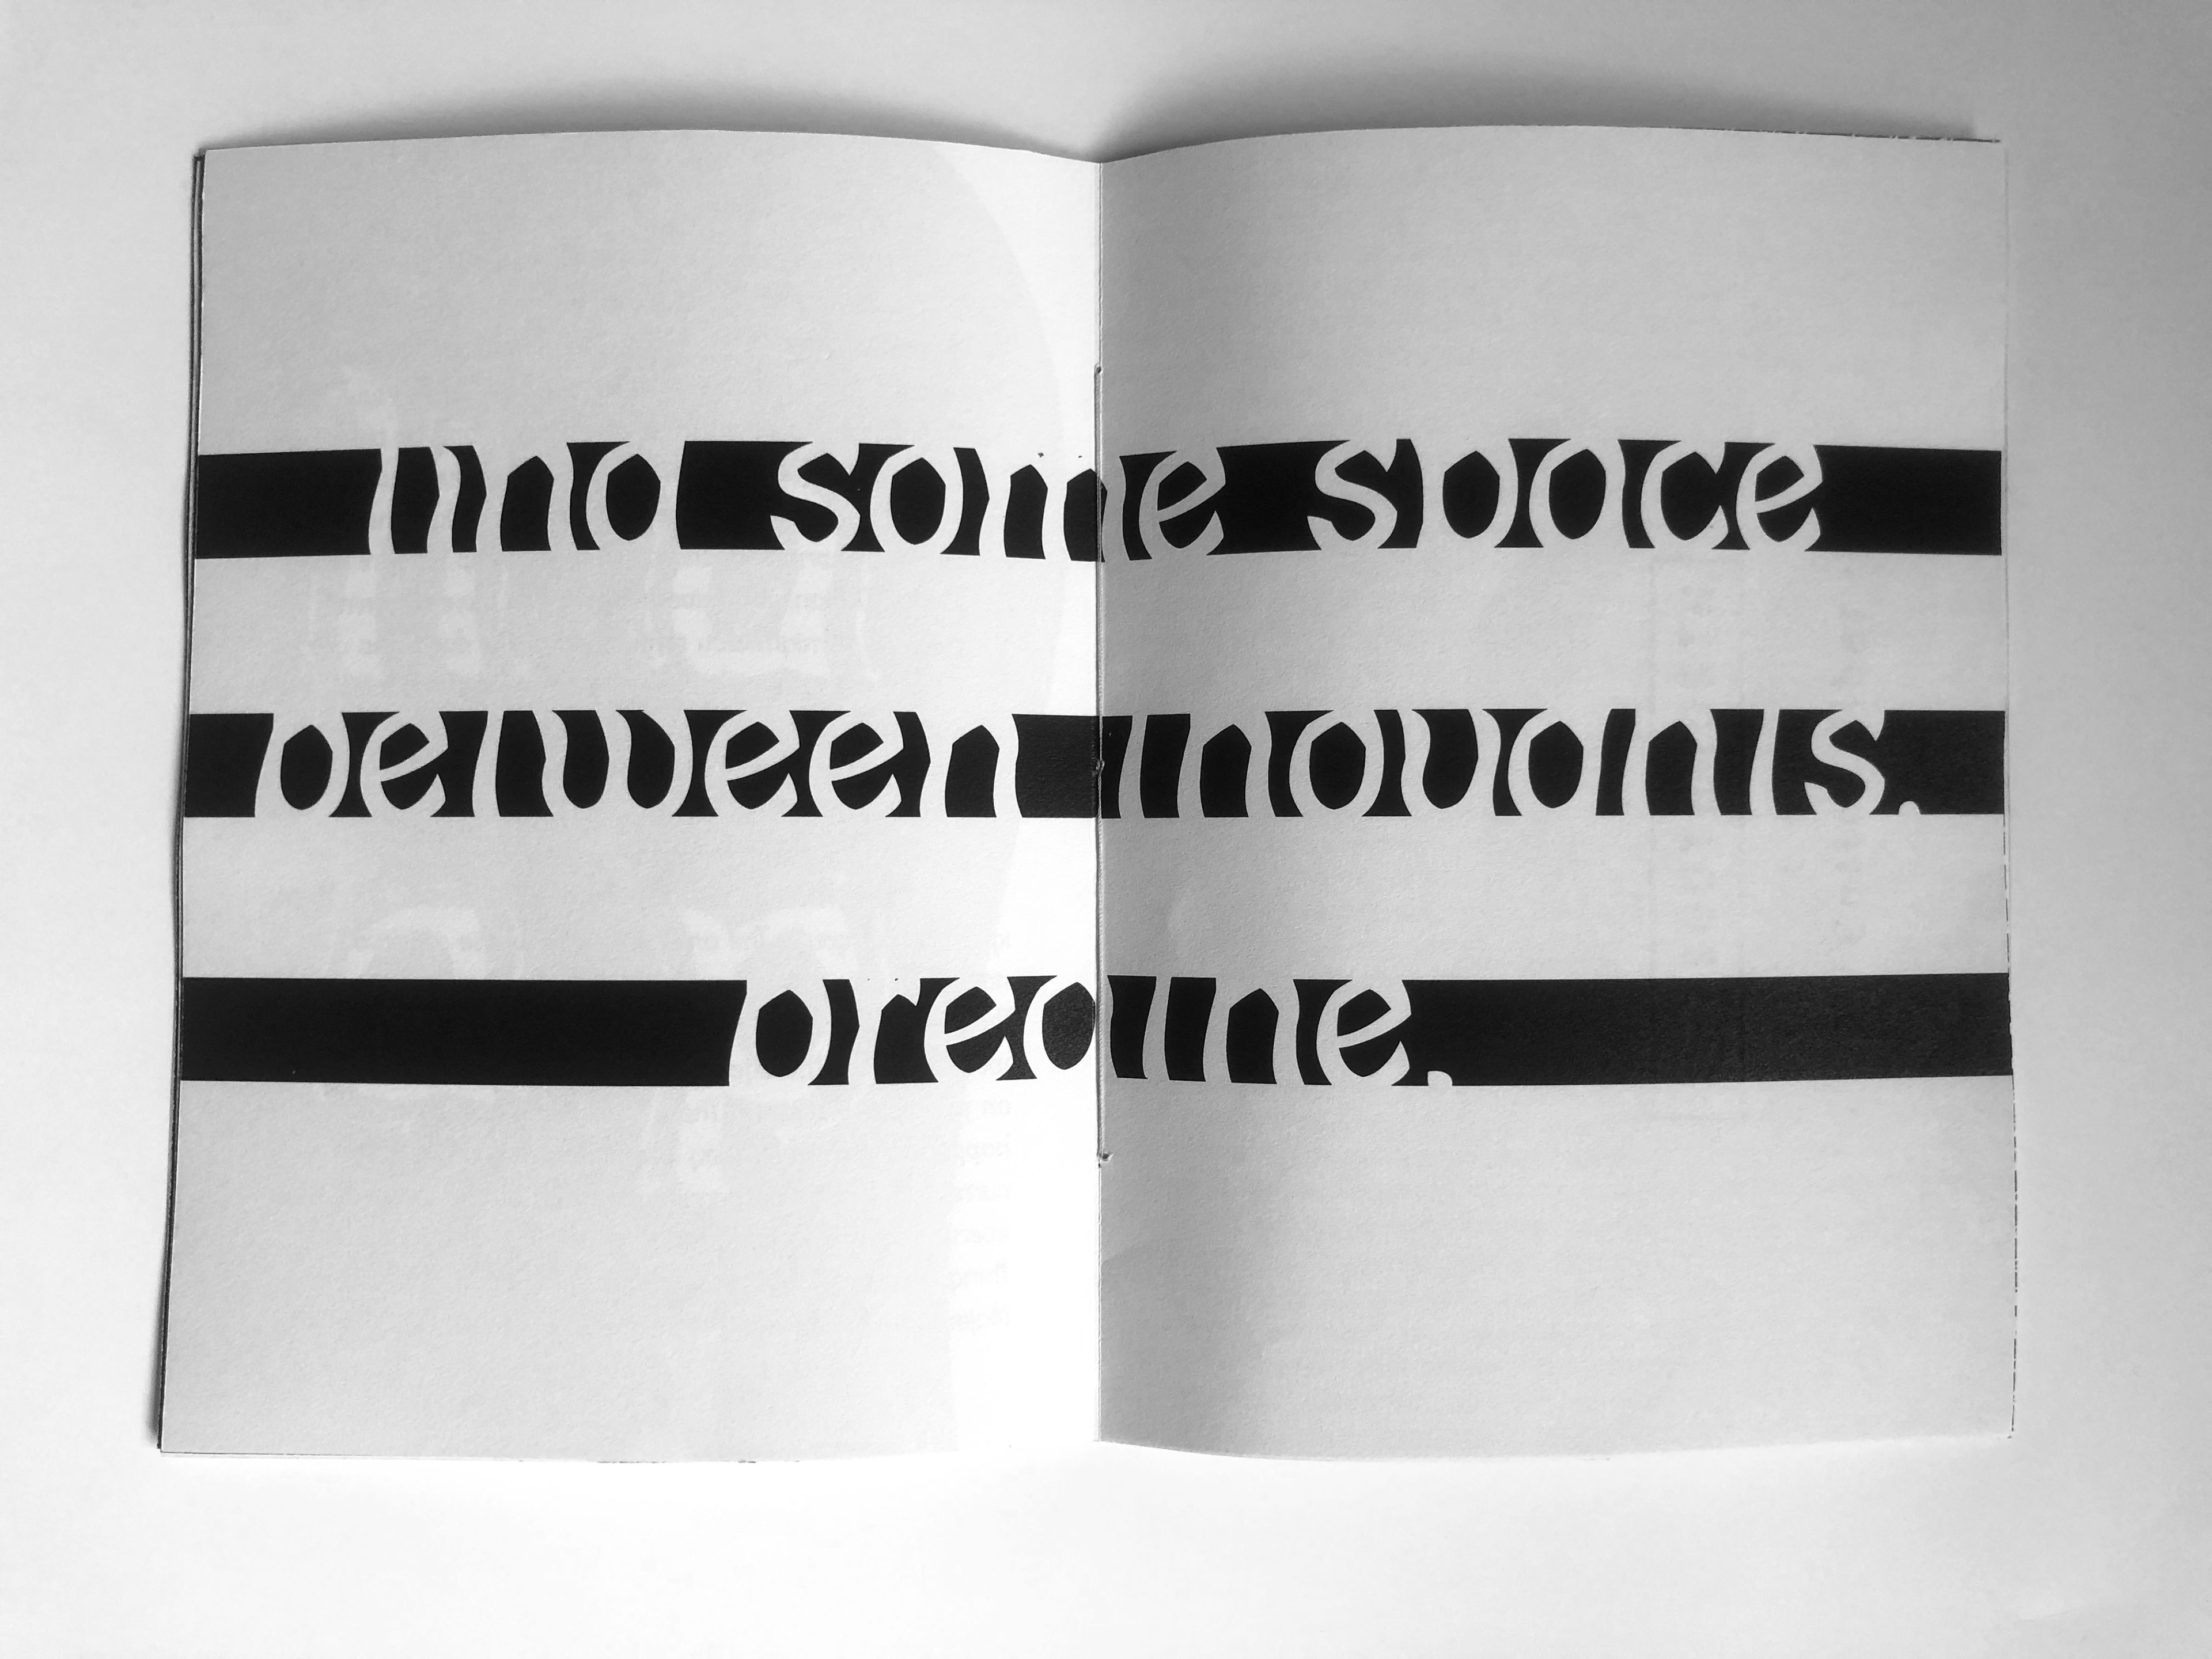 find some space
between thoughts.
breathe.